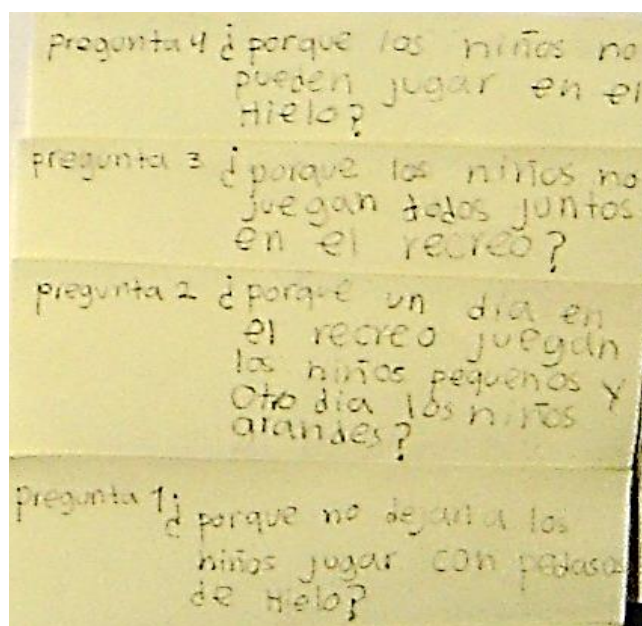 pregunta 4 ¿porque los niños no
pueden jugar en el
Hielo?
pregunta 3 ¿porque los niños no
juegan todos juntos
en el recreo?
pregunta 2 ¿porque un día en
el recreo juegan
los niños pequeños y
Otro día los niños
grandes?
pregunta 1 ¿porque no dejan a los
niños jugar con pedaso
de Hielo?